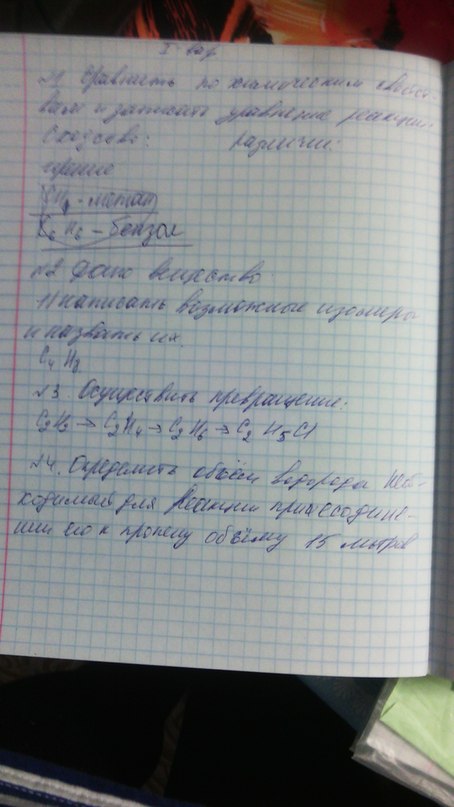 I вар
№1 Сравнить по химическим свойст-
вам и записать уравнение реакции.
Сходство: различие:
горение
CH4 - метан
C6H6 - бензол
№2 Дано вещество.
1) написать возможные изомеры
и назвать их.
C4H8
№3. Осуществить превращение:
C2H2 → C2H4 → C2H6 → C2H5Cl
№4. Определить объём водорода необ-
ходимый для реакции присоедине-
нии его к пропену объёму 15 литров